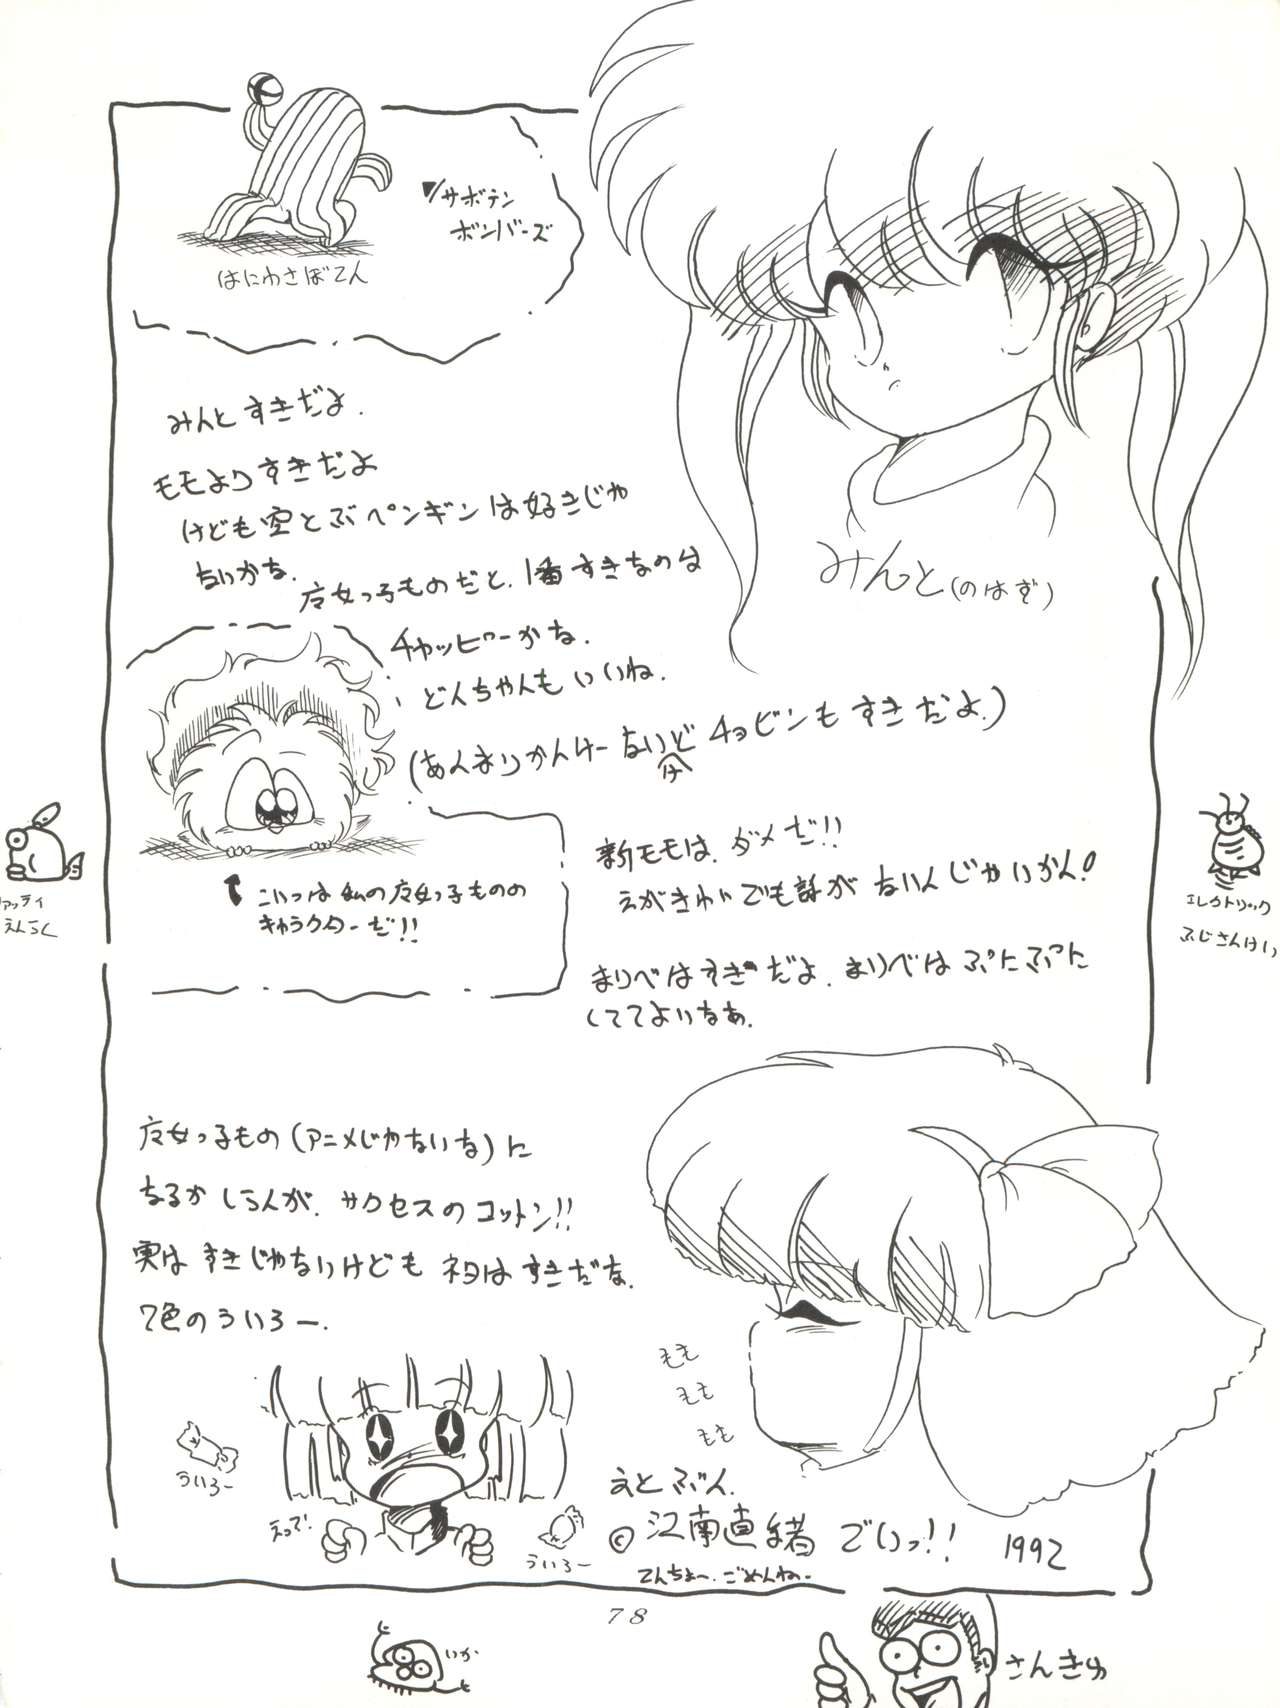 サボテン
ボンバーズ
はにわさぼてん
みんとすきだよ.
モモよりすきだよ
けども空とぶペンギンは好きじゃ
ないかな.
魔女っ子ものだと、1番すきなのは
チャッピーかな.
どんちゃんもいいね.
(あんまりかんけーないけど チョビンもすきだよ.)
みんと(のはず)
こいつは私の魔女っ子ものの
キャラクターだ!!
新モモは、ダメだ!!
えがきれいでも話がないんじゃいかん!
まりべはすきだよ. まりべは ぷにぷに
しててよいなあ.
えんらく
エレクトリック
ふじさんけい
魔女っ子もの(アニメじゃないな)に
なるかしらんが、サクセスのコットン!!
実はすきじゃないけども ネタはすきだな.
7色のういろー.
もも
もも
もも
ういろー
えっで!
ういろー
えとぶん.
© 江南直緒 でいっ!! 1992
てんちょー、ごめんねー
78
いか
さんきゅ